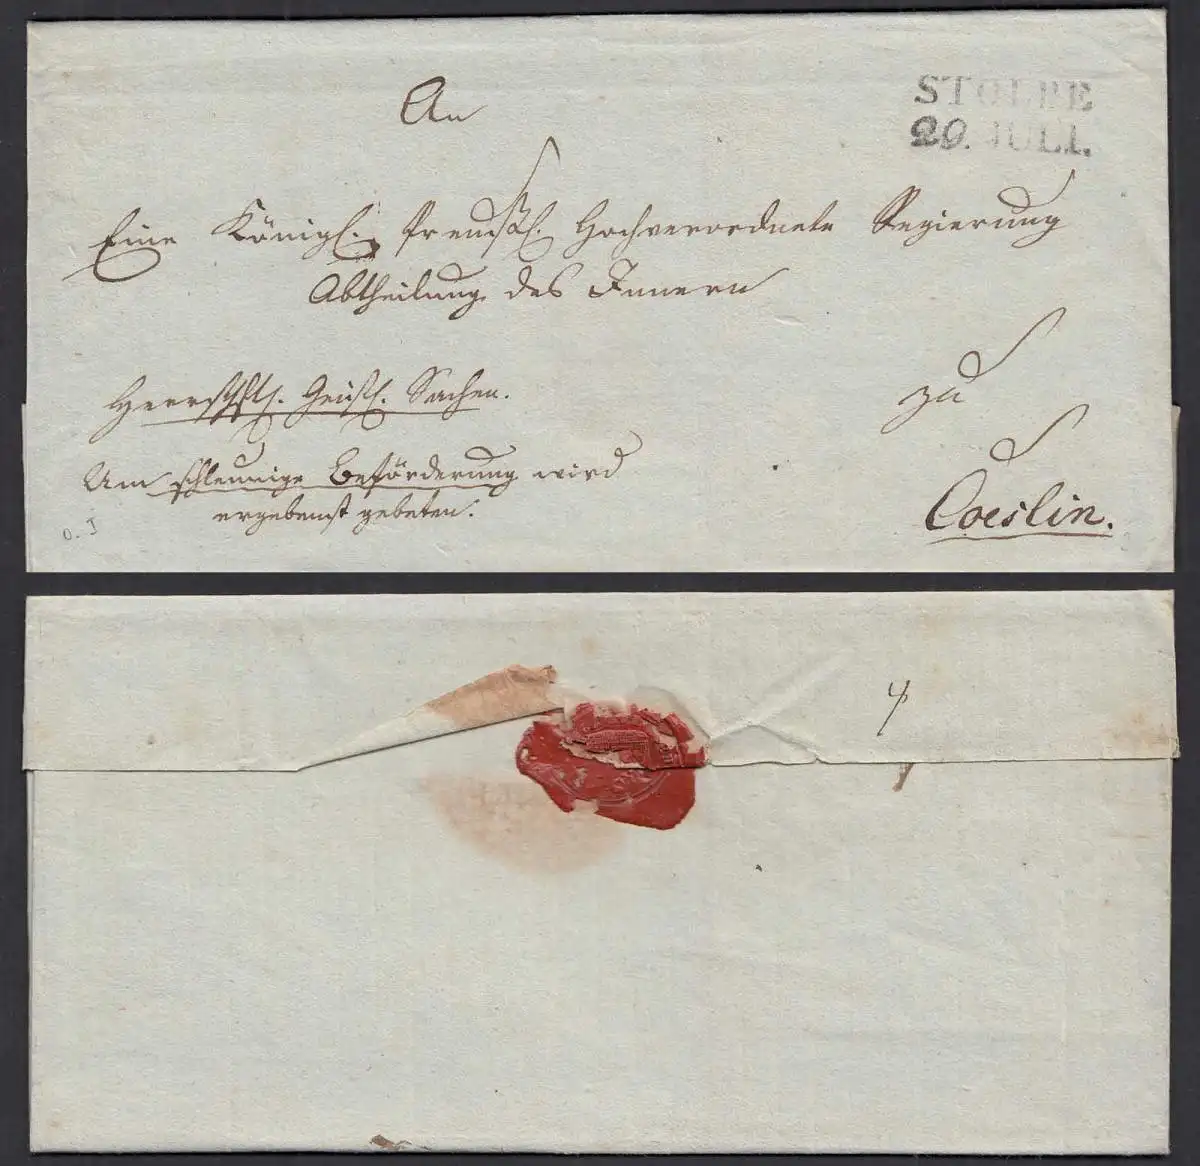 STOLPE
29. JULI.
An
Eine Königl. Preuß. Hochverordnete Regierung
Abtheilung des Innern
Herrschftl. Sachen.
zu
Um schleunige Beförderung wird
ergebenst gebeten.
Coeslin.